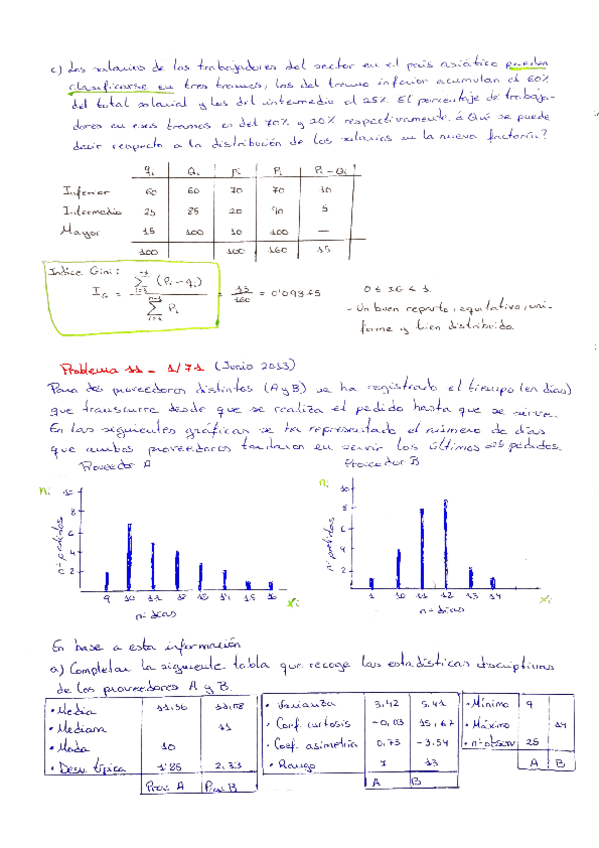 c) Los salarios de los trabajadores del sector en el país asiático pueden
clasificarse en tres tramos, los del tramo inferior acumulan el 60%
del total salarial y los del intermedio el 25%. El porcentaje de trabaja-
dores en esos tramos es del 70% y 20% respectivamente. ¿Qué se puede
decir respecto a la distribución de los salarios en la nueva factoría?
qi Qi pi Pi Pi - Qi
Inferior 60 60 70 70 10
Intermedio 25 85 20 90 5
Mayor 15 100 10 100 —
100 100 160 15
Indice Gini:
IG = Σ (Pi - qi) / Σ Pi = 15/160 = 0'09375
0 ≤ IG ≤ 1
- Un buen reparto, equitativo, uni-
forme y bien distribuido
Problema 11 - 1/71 (Junio 2013)
Para dos proveedores distintos (A y B) se ha registrado el tiempo (en días)
que transcurre desde que se realiza el pedido hasta que se sirve.
En las siguientes gráficas se ha representado el número de días
que ambos proveedores tardaron en servir los últimos 25 pedidos.
Proveedor A Proveedor B
ni 10 8 6 4 2
nº pedidos
9 10 11 12 13 14 15 16 xi
nº días
ni 10 8 6 4 2
nº pedidos
1 10 11 12 13 14 xi
nº días
En base a esta información
a) Completar la siguiente tabla que recoge las estadísticas descriptivas
de los proveedores A y B.
• Media 11,56 11,08
• Mediana 11
• Moda 10
• Desv. típica 1'85 2,33
Prov. A Prov. B
• Varianza 3,42 5,41
• Coef. curtosis -0,03 15,67
• Coef. asimetría 0,75 -3,54
• Rango 7 13
A B
• Mínimo 9
• Máximo 14
• nº observ 25
A B